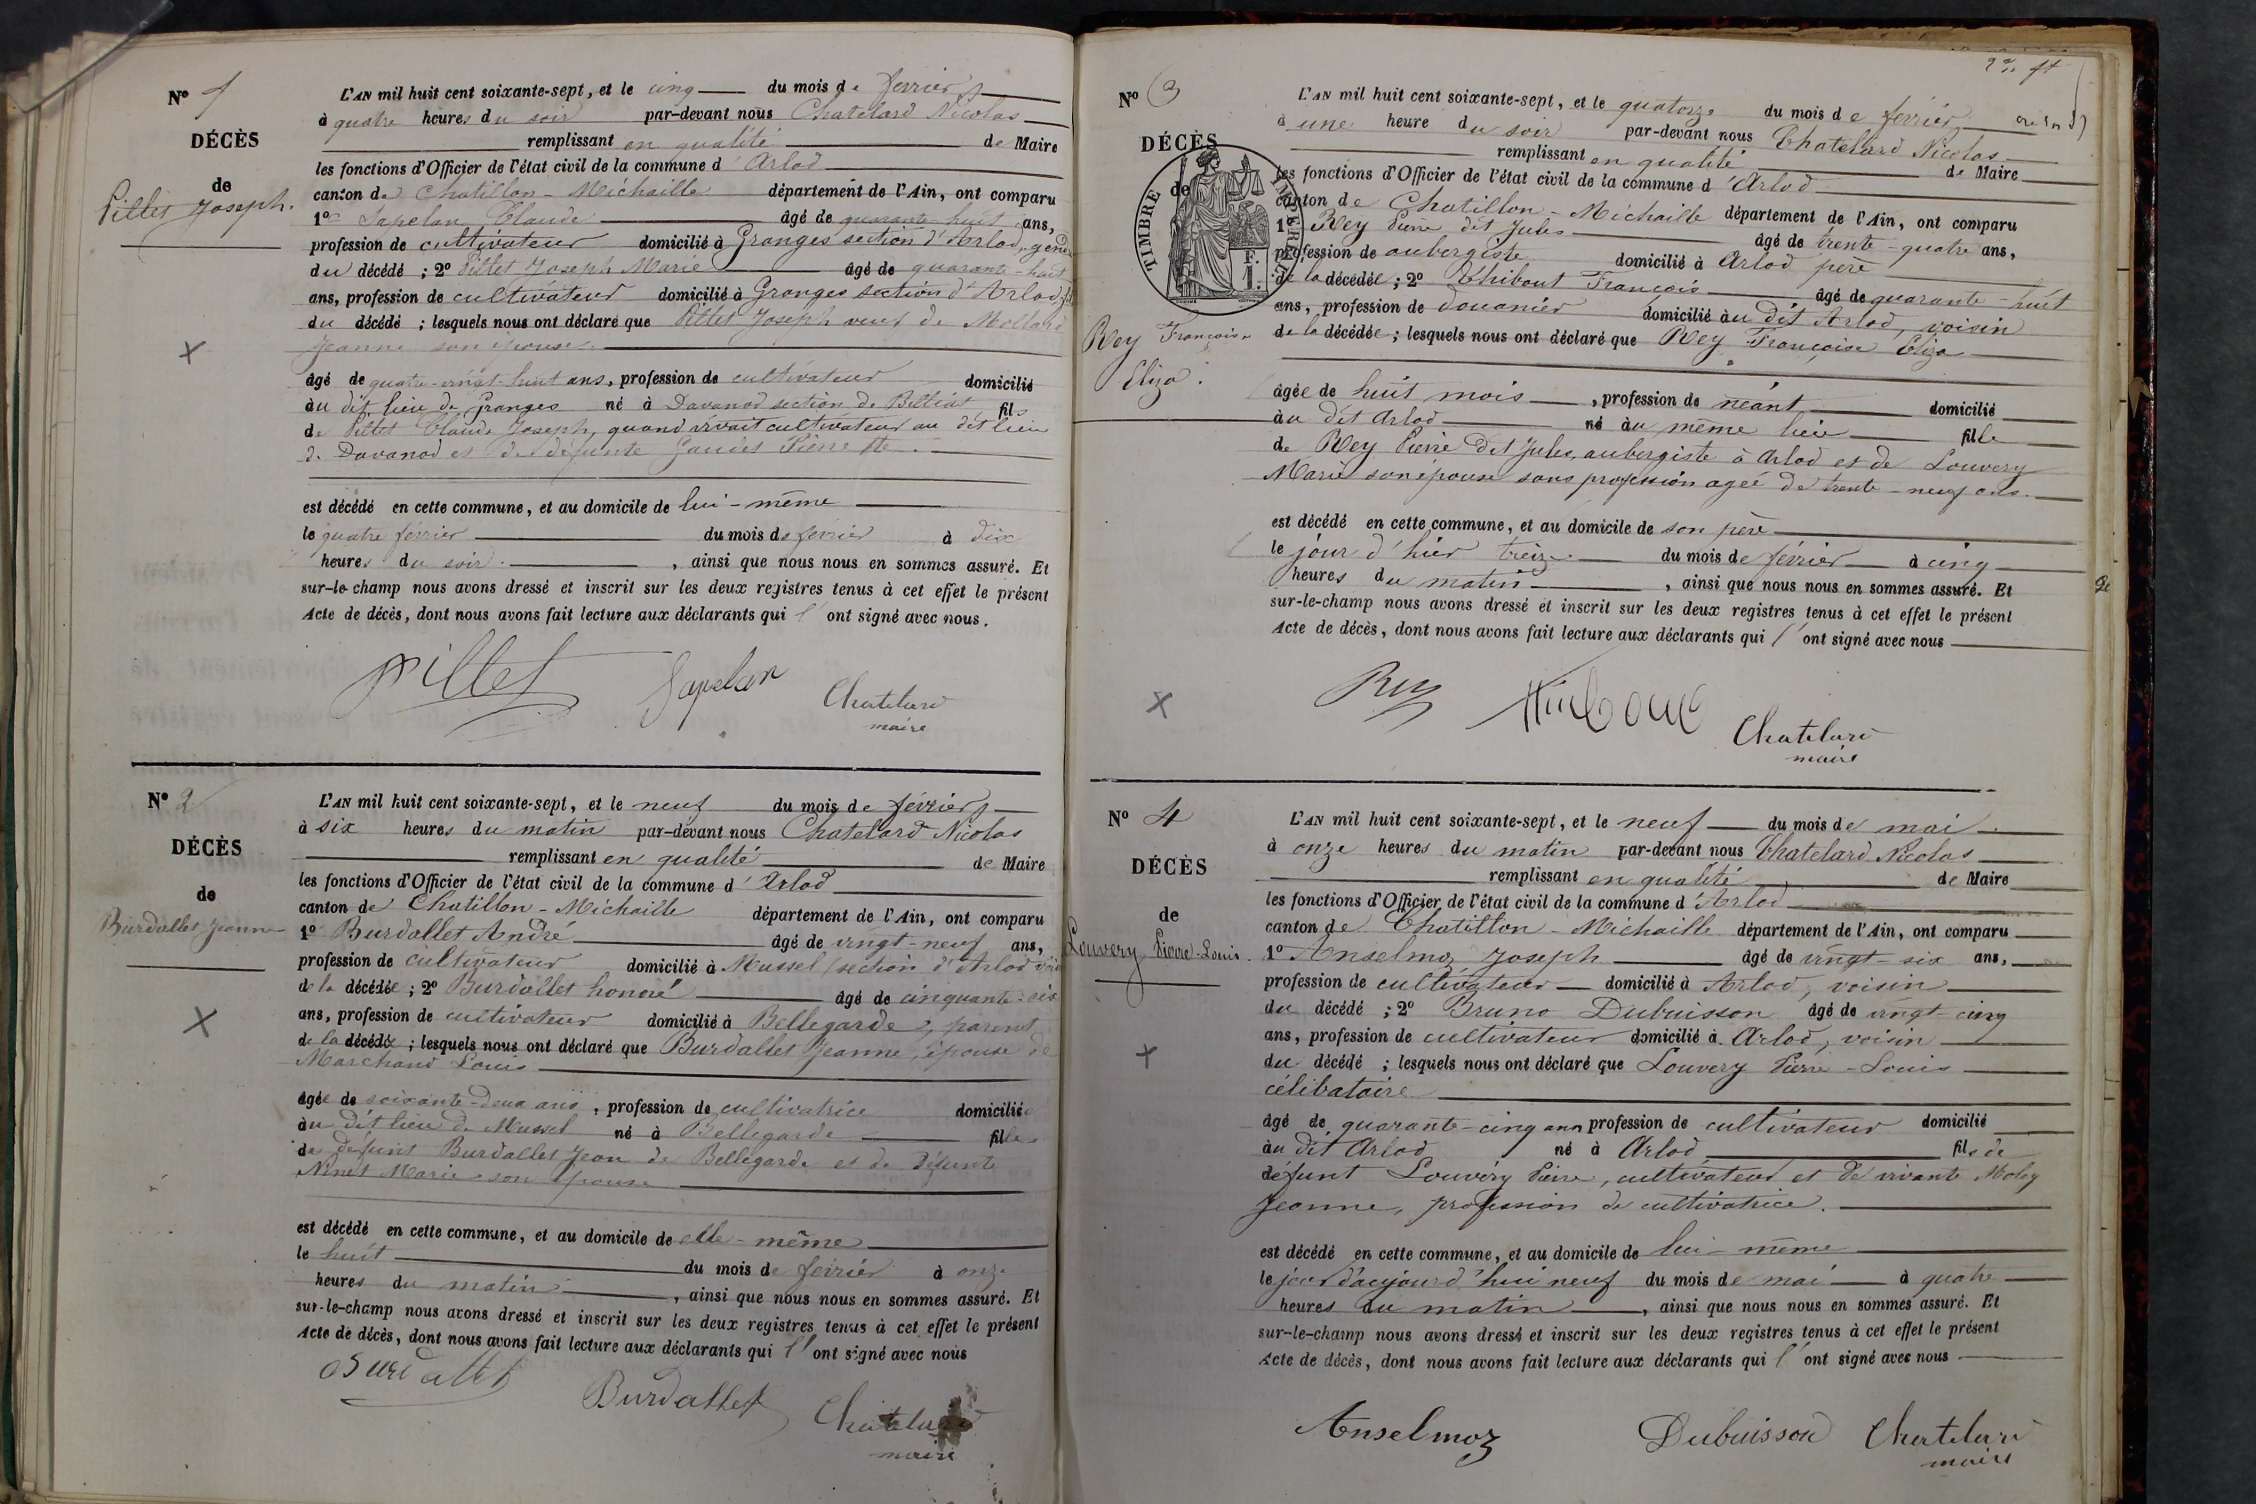 N° 1
DÉCÈS
de
Pillet Joseph.
L'AN mil huit cent soixante-sept, et le cinq du mois de février
à quatre heures du soir par-devant nous Chatelard Nicolas
remplissant en qualité de Maire
les fonctions d'Officier de l'état civil de la commune d'Arlod
canton de Chatillon-Michaille département de l'Ain, ont comparu
1° Sapelan Claude âgé de quarante-huit ans,
profession de cultivateur domicilié à Granges section d'Arlod, gendre
du décédé ; 2° Pillet Joseph Marie âgé de quarante-huit
ans, profession de cultivateur domicilié à Granges section d'Arlod, fils
du décédé ; lesquels nous ont déclaré que Pillet Joseph veuf de Mollard
Jeanne son épouse
âgé de quatre-vingt-huit ans, profession de cultivateur domicilié
au dit lieu de Granges né à Davanod section de Billiat fils
de Pillet Claude Joseph, quand vivait cultivateur au dit lieu
de Davanod et de défunte Pierrette
est décédé en cette commune, et au domicile de lui-même
le quatre février du mois de février à dix
heures du soir, ainsi que nous nous en sommes assuré. Et
sur-le-champ nous avons dressé et inscrit sur les deux registres tenus à cet effet le présent
Acte de décès, dont nous avons fait lecture aux déclarants qui l'ont signé avec nous.
Pillet Sapelan Chatelard
maire
N° 2
DÉCÈS
de
Burdallet Jeanne
L'AN mil huit cent soixante-sept, et le neuf du mois de février
à six heures du matin par-devant nous Chatelard Nicolas
remplissant en qualité de Maire
les fonctions d'Officier de l'état civil de la commune d'Arlod
canton de Chatillon-Michaille département de l'Ain, ont comparu
1° Burdallet André âgé de vingt-neuf ans,
profession de cultivateur domicilié à Mussel section d'Arlod
de la décédée ; 2° Burdallet honoré âgé de cinquante-six
ans, profession de cultivateur domicilié à Bellegarde, parent
de la décédée ; lesquels nous ont déclaré que Burdallet Jeanne, épouse de
Marchand Louis
âgée de soixante-deux ans, profession de cultivatrice domiciliée
au dit lieu de Mussel né à Bellegarde fille
de défunt Burdallet Jean de Bellegarde et de défunte
Ninet Marie son épouse
est décédé en cette commune, et au domicile de elle-même
le huit du mois de février à onze
heures du matin, ainsi que nous nous en sommes assuré. Et
sur-le-champ nous avons dressé et inscrit sur les deux registres tenus à cet effet le présent
Acte de décès, dont nous avons fait lecture aux déclarants qui l'ont signé avec nous
Burdallet Burdallet Chatelard
maire
N° 3
DÉCÈS
de
TIMBRE IMPERIAL
F.
1.
Rey Françoise
Eliza.
L'AN mil huit cent soixante-sept, et le quatorze du mois de février
à une heure du soir par-devant nous Chatelard Nicolas
remplissant en qualité de Maire
les fonctions d'Officier de l'état civil de la commune d'Arlod
canton de Chatillon-Michaille département de l'Ain, ont comparu
1° Rey Pierre dit Jules âgé de trente-quatre ans,
profession de aubergiste domicilié à Arlod père
de la décédée ; 2° Thibout François âgé de quarante-huit
ans, profession de douanier domicilié au dit Arlod, voisin
de la décédée ; lesquels nous ont déclaré que Rey Françoise Eliza
âgée de huit mois, profession de néant domicilié
au dit Arlod né au même lieu fille
de Rey Pierre dit Jules, aubergiste à Arlod et de Louvery
Marie son épouse sans profession agée de trente-neuf ans.
est décédé en cette commune, et au domicile de son père
le jour d'hier treize du mois de février à cinq
heures du matin, ainsi que nous nous en sommes assuré. Et
sur-le-champ nous avons dressé et inscrit sur les deux registres tenus à cet effet le présent
Acte de décès, dont nous avons fait lecture aux déclarants qui l'ont signé avec nous
Rey Thibout Chatelard
maire
N° 4
DÉCÈS
de
Louvery Pierre-Louis.
L'AN mil huit cent soixante-sept, et le neuf du mois de mai
à onze heures du matin par-devant nous Chatelard Nicolas
remplissant en qualité de Maire
les fonctions d'Officier de l'état civil de la commune d'Arlod
canton de Chatillon-Michaille département de l'Ain, ont comparu
1° Anselmoz Joseph âgé de vingt-six ans,
profession de cultivateur domicilié à Arlod, voisin
du décédé ; 2° Bruno Dubuisson âgé de vingt-cinq
ans, profession de cultivateur domicilié à Arlod, voisin
du décédé ; lesquels nous ont déclaré que Louvery Pierre-Louis
célibataire
âgé de quarante-cinq ans profession de cultivateur domicilié
au dit Arlod né à Arlod fils de
défunt Louvery Pierre, cultivateur et de vivante Moley
Jeanne, profession de cultivatrice.
est décédé en cette commune, et au domicile de lui-même
le jour d'aujourd'hui neuf du mois de mai à quatre
heures du matin, ainsi que nous nous en sommes assuré. Et
sur-le-champ nous avons dressé et inscrit sur les deux registres tenus à cet effet le présent
Acte de décès, dont nous avons fait lecture aux déclarants qui l'ont signé avec nous
Anselmoz Dubuisson Chatelard
maire